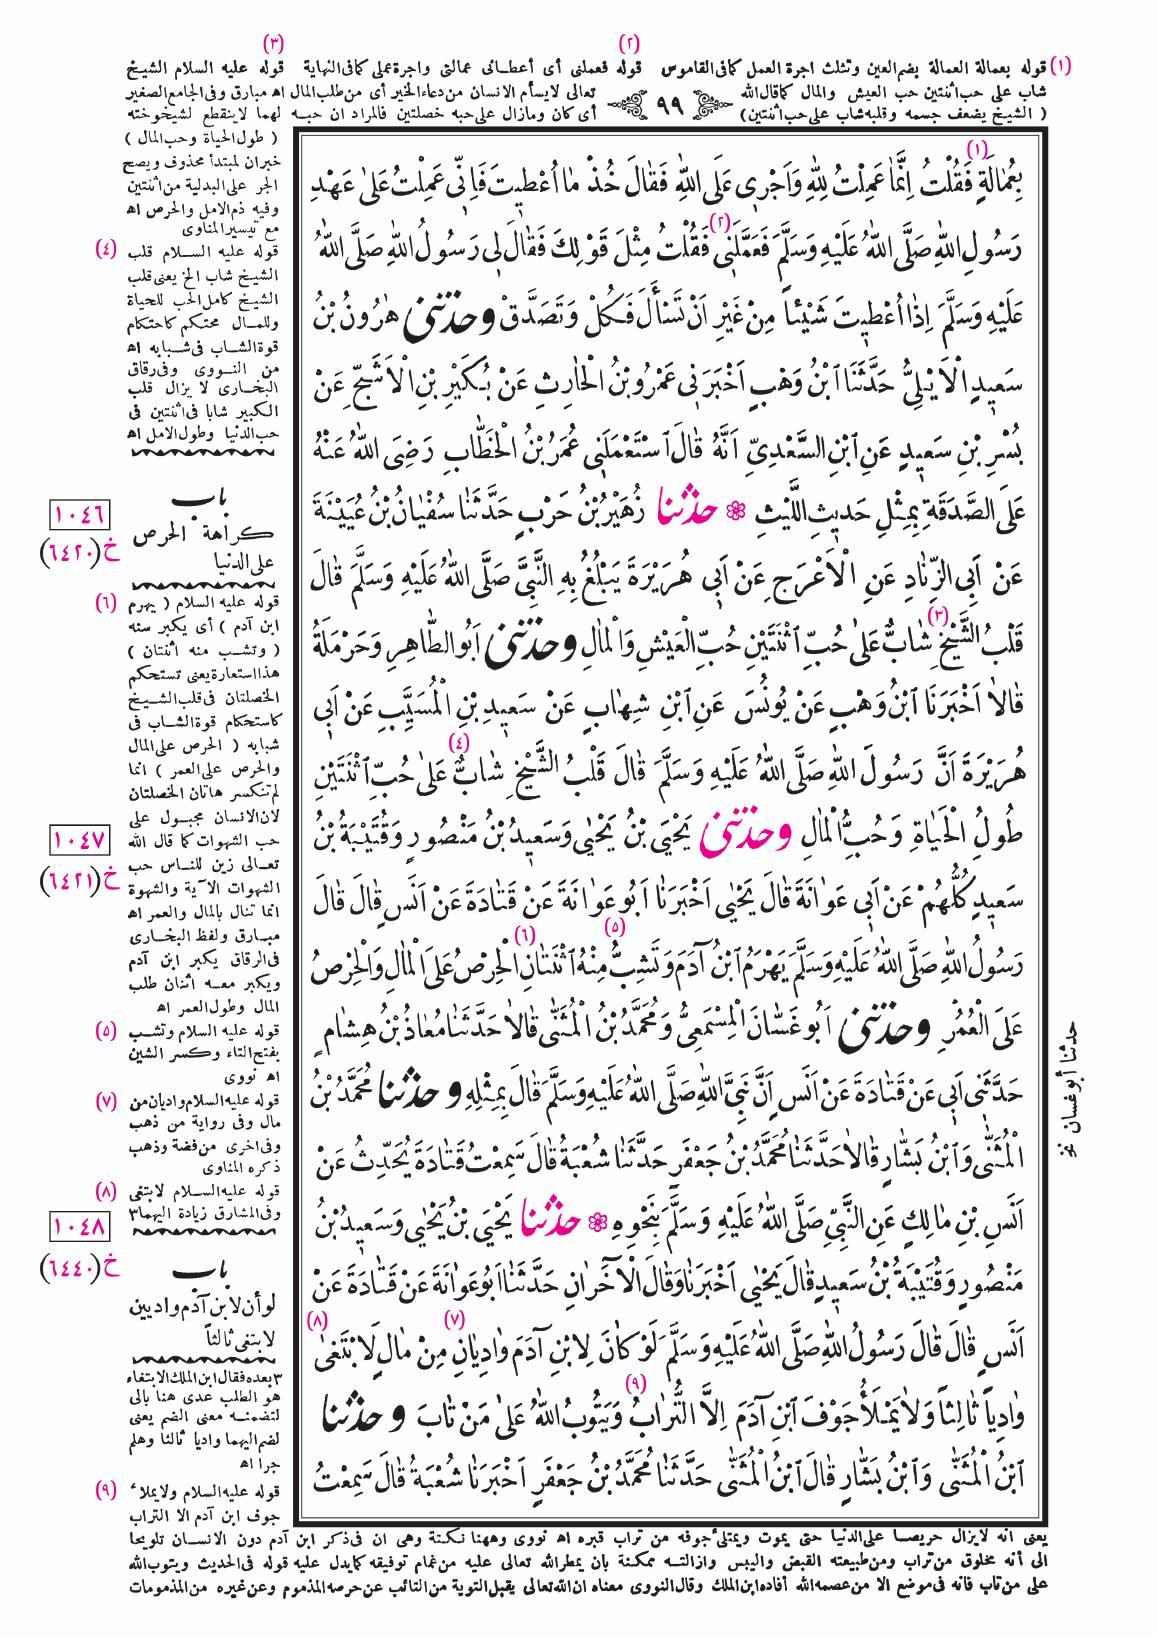 (٣) (٢)
(١) قوله بعمالة العمالة بضم العين وتثلث اجرة العمل كما فى القاموس قوله فعملنى أى أعطائى عمالتى واجرة عملى كما فى النهاية قوله عليه السلام الشيخ
شاب على حب اثنتين حب العيش والمال كما قال الله تعالى لا يسأم الانسان من دعاء الخير أى من طلب المال اه مبارق وفى الجامع الصغير
( الشيخ يضعف جسمه وقلبه شاب على حب اثنتين) ٩٩ أى كان ومازال على حبه خصلتين فالمراد ان حبه لهما لا ينقطع لشيخوخته
(١)
بِعُمَالَةٍ فَقُلْتُ اِنَّمَا عَمِلْتُ لِلّٰهِ وَاَجْرِى عَلَى اللّٰهِ فَقَالَ خُذْ مَا اُعْطِيتَ فَاِنِّى عَمِلْتُ عَلىٰ عَهْدِ
(٢)
رَسُولِ اللّٰهِ صَلَّى اللّٰهُ عَلَيْهِ وَسَلَّمَ فَعَمَّلَنِى فَقُلْتُ مِثْلَ قَوْلِكَ فَقَالَ لِى رَسُولُ اللّٰهِ صَلَّى اللّٰهُ
عَلَيْهِ وَسَلَّمَ اِذَا اُعْطِيتَ شَيْئاً مِنْ غَيْرِ اَنْ تَسْأَلَ فَكُلْ وَتَصَدَّقْ وحَدَّثَنِى هٰرُونُ بْنُ
سَعِيدٍ الْاَيْلِىُّ حَدَّثَنَا ابْنُ وَهْبٍ اَخْبَرَنِى عَمْرُو بْنُ الْحَارِثِ عَنْ بُكَيْرِ بْنِ الْاَشَجِّ عَنْ
بُسْرِ بْنِ سَعِيدٍ عَنِ ابْنِ السَّعْدِىِّ اَنَّهُ قَالَ اسْتَعْمَلَنِى عُمَرُ بْنُ الْخَطَّابِ رَضِىَ اللّٰهُ عَنْهُ
عَلَى الصَّدَقَةِ بِمِثْلِ حَدِيثِ اللَّيْثِ ❁ حَدَّثَنَا زُهَيْرُ بْنُ حَرْبٍ حَدَّثَنَا سُفْيَانُ بْنُ عُيَيْنَةَ
عَنْ اَبِى الزِّنَادِ عَنِ الْاَعْرَجِ عَنْ اَبِى هُرَيْرَةَ يَبْلُغُ بِهِ النَّبِىَّ صَلَّى اللّٰهُ عَلَيْهِ وَسَلَّمَ قَالَ
(٣)
قَلْبُ الشَّيْخِ شَابٌّ عَلىٰ حُبِّ اثْنَتَيْنِ حُبِّ الْعَيْشِ وَالْمَالِ وحَدَّثَنِى اَبُو الطَّاهِرِ وَحَرْمَلَةُ
قَالَا اَخْبَرَنَا ابْنُ وَهْبٍ عَنْ يُونُسَ عَنِ ابْنِ شِهَابٍ عَنْ سَعِيدِ بْنِ الْمُسَيَّبِ عَنْ اَبِى
(٤)
هُرَيْرَةَ اَنَّ رَسُولَ اللّٰهِ صَلَّى اللّٰهُ عَلَيْهِ وَسَلَّمَ قَالَ قَلْبُ الشَّيْخِ شَابٌّ عَلىٰ حُبِّ اثْنَتَيْنِ
طُولُ الْحَيَاةِ وَحُبُّ الْمَالِ وحَدَّثَنِى يَحْيَى بْنُ يَحْيٰى وَسَعِيدُ بْنُ مَنْصُورٍ وَقُتَيْبَةُ بْنُ
سَعِيدٍ كُلُّهُمْ عَنْ اَبِى عَوَانَةَ قَالَ يَحْيٰى اَخْبَرَنَا اَبُو عَوَانَةَ عَنْ قَتَادَةَ عَنْ اَنَسٍ قَالَ قَالَ
(٥) (٦)
رَسُولُ اللّٰهِ صَلَّى اللّٰهُ عَلَيْهِ وَسَلَّمَ يَهْرَمُ ابْنُ آدَمَ وَتَشِبُّ مِنْهُ اثْنَتَانِ الْحِرْصُ عَلَى الْمَالِ وَالْحِرْصُ
عَلَى الْعُمُرِ وحَدَّثَنِى اَبُو غَسَّانَ الْمِسْمَعِىُّ وَمُحَمَّدُ بْنُ الْمُثَنّٰى قَالَا حَدَّثَنَا مُعَاذُ بْنُ هِشَامٍ
حَدَّثَنِى اَبِى عَنْ قَتَادَةَ عَنْ اَنَسٍ اَنَّ نَبِىَّ اللّٰهِ صَلَّى اللّٰهُ عَلَيْهِ وَسَلَّمَ قَالَ بِمِثْلِهِ وحَدَّثَنَا مُحَمَّدُ بْنُ
الْمُثَنّٰى وَابْنُ بَشَّارٍ قَالَا حَدَّثَنَا مُحَمَّدُ بْنُ جَعْفَرٍ حَدَّثَنَا شُعْبَةُ قَالَ سَمِعْتُ قَتَادَةَ يُحَدِّثُ عَنْ
اَنَسِ بْنِ مَالِكٍ عَنِ النَّبِىِّ صَلَّى اللّٰهُ عَلَيْهِ وَسَلَّمَ بِنَحْوِهِ ❁ حَدَّثَنَا يَحْيَى بْنُ يَحْيٰى وَسَعِيدُ بْنُ
مَنْصُورٍ وَقُتَيْبَةُ بْنُ سَعِيدٍ قَالَ يَحْيٰى اَخْبَرَنَا وَقَالَ الْآخَرَانِ حَدَّثَنَا اَبُو عَوَانَةَ عَنْ قَتَادَةَ عَنْ
(٧) (٨)
اَنَسٍ قَالَ قَالَ رَسُولُ اللّٰهِ صَلَّى اللّٰهُ عَلَيْهِ وَسَلَّمَ لَوْ كَانَ لِابْنِ آدَمَ وَادِيَانِ مِنْ مَالٍ لَابْتَغىٰ
(٩)
وَادِياً ثَالِثاً وَلَا يَمْلَأُ جَوْفَ ابْنِ آدَمَ اِلَّا التُّرَابُ وَيَتُوبُ اللّٰهُ عَلىٰ مَنْ تَابَ وحَدَّثَنَا
ابْنُ الْمُثَنّٰى وَابْنُ بَشَّارٍ قَالَ ابْنُ الْمُثَنّٰى حَدَّثَنَا مُحَمَّدُ بْنُ جَعْفَرٍ اَخْبَرَنَا شُعْبَةُ قَالَ سَمِعْتُ
حدثنا أبو غسان نخ
( طول الحياة وحب المال )
خبران لمبتدأ محذوف ويصح
الجر على البدلية من اثنتين
وفيه ذم الامل والحرص اه
مع تيسير المناوى
(٤) قوله عليه السلام قلب
الشيخ شاب الخ يعنى قلب
الشيخ كامل الحب للحياة
وللمال محتكم كاحتكام
قوة الشاب فى شبابه اه
من النووى وفى رقاق
البخارى لا يزال قلب
الكبير شابا فى اثنتين فى
حب الدنيا وطول الامل اه
١٠٤٦
خ (٦٤٢٠)
باب
كراهة الحرص
على الدنيا
(٦) قوله عليه السلام ( يهرم
ابن آدم ) أى يكبر سنه
( وتشب منه اثنتان )
هذا استعارة يعنى تستحكم
الخصلتان فى قلب الشيخ
كاستحكام قوة الشاب فى
شبابه ( الحرص على المال
والحرص على العمر ) انما
لم تنكسر هاتان الخصلتان
لان الانسان مجبول على
حب الشهوات كما قال الله
تعالى زين للناس حب
الشهوات الآية والشهوة
انما تنال بالمال والعمر اه
مبارق ولفظ البخارى
فى الرقاق يكبر ابن آدم
ويكبر معه اثنان طلب
المال وطول العمر اه
١٠٤٧
خ (٦٤٢١)
(٥) قوله عليه السلام وتشب
بفتح التاء وكسر الشين
اه نووى
(٧) قوله عليه السلام واديان من
مال وفى رواية من ذهب
وفى اخرى من فضة وذهب
ذكره المناوى
(٨) قوله عليه السلام لابتغى
وفى المشارق زيادة اليهما ٣
١٠٤٨
خ (٦٤٤٠)
باب
لو أن لابن آدم واديين
لابتغى ثالثاً
٣ بعده فقال ابن الملك الابتغاء
هو الطلب عدى هنا بالى
لتضمنه معنى الضم يعنى
لضم اليهما واديا ثالثا وهلم
جرا اه
(٩) قوله عليه السلام ولا يملاء
جوف ابن آدم الا التراب
يعنى انه لا يزال حريصا على الدنيا حتى يموت ويمتلى جوفه من تراب قبره اه نووى وههنا نكتة وهى ان فى ذكر ابن آدم دون الانسان تلويحا
الى أنه مخلوق من تراب ومن طبيعته القبض واليبس وازالته ممكنة بان يمطر الله تعالى عليه من غمام توفيقه كما يدل عليه قوله فى الحديث ويتوب الله
على من تاب فانه فى موضع الا من عصمه الله أفاده ابن الملك وقال النووى معناه ان الله تعالى يقبل التوبة من التائب عن حرصه المذموم وعن غيره من المذمومات